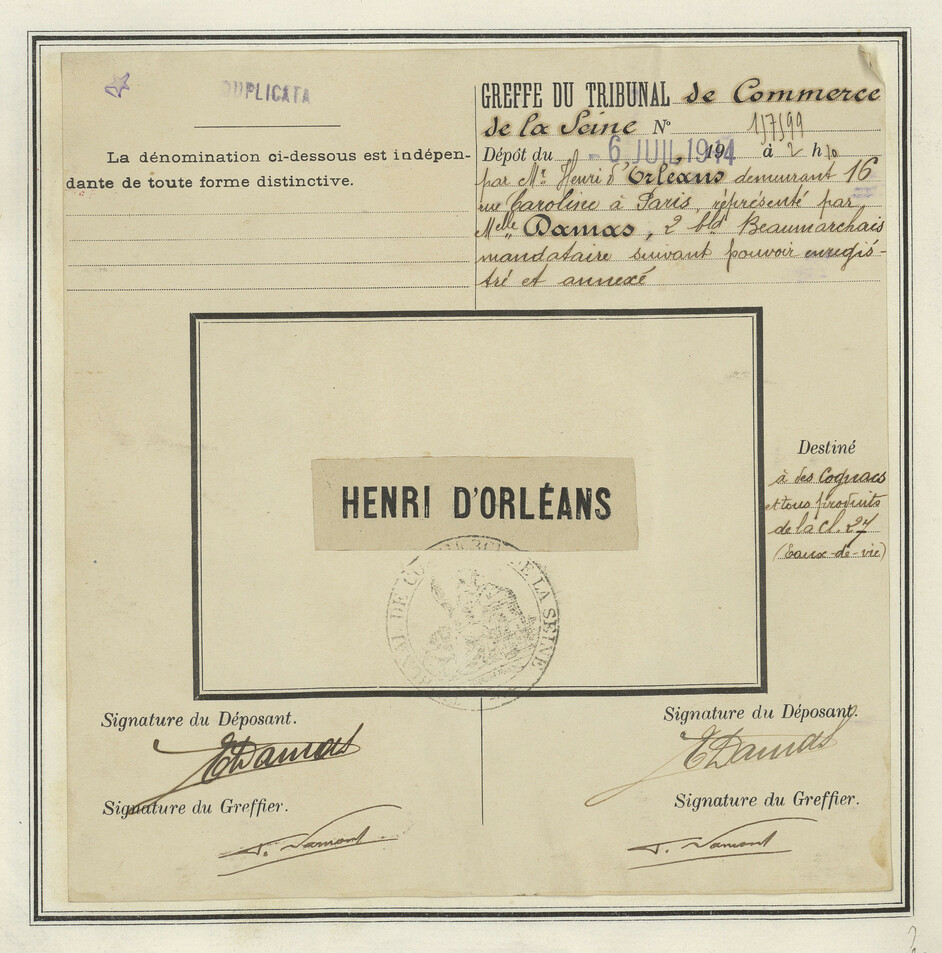 DUPLICATA
La dénomination ci-dessous est indépen-
dante de toute forme distinctive.
GREFFE DU TRIBUNAL de Commerce
de la Seine N°
Dépôt du - 6 JUIL 1914 à 2 h 30
par Mr. Henri d'Orléans demeurant 16
rue Caroline à Paris, représenté par
Melle Damas, 2 bld Beaumarchais
mandataire suivant pouvoir enregis-
tré et annexé
HENRI D'ORLÉANS
Destiné
à des Cognacs
et tous produits
de la Cl. 27
(Eaux-de-vie)
DE LA SEINE
Signature du Déposant.
EDamas
Signature du Greffier.
Signature du Déposant.
EDamas
Signature du Greffier.